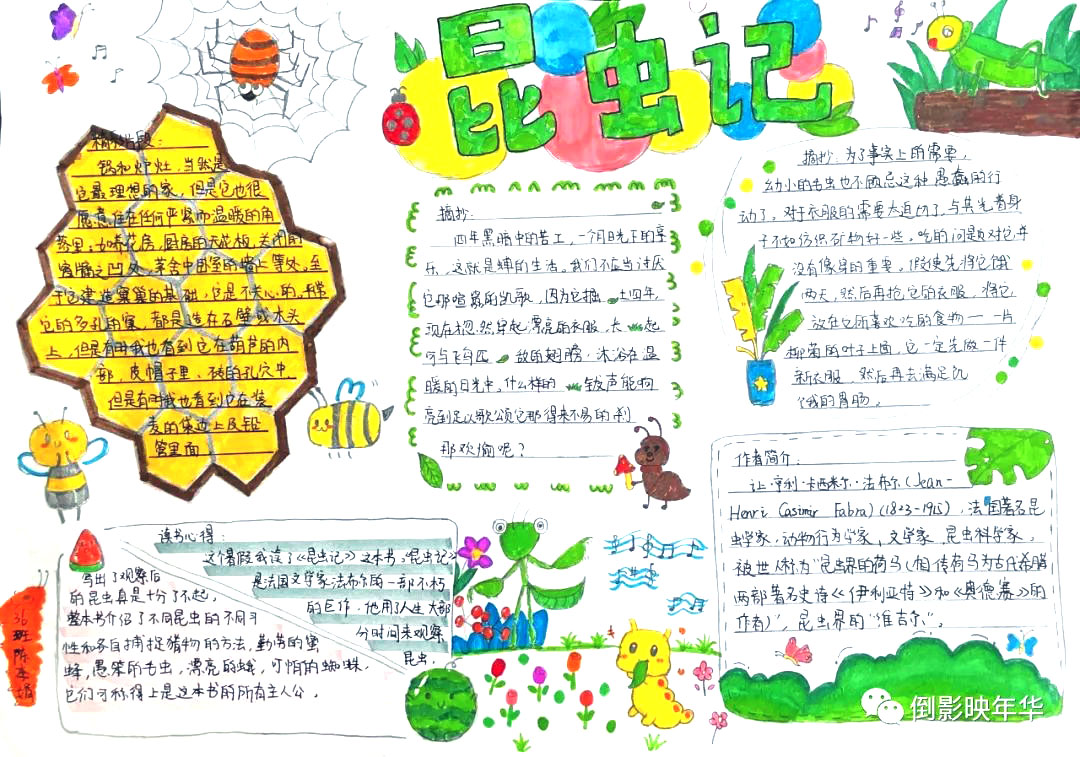 昆虫记
精彩片段:
锅和炉灶,当然是
它最理想的家,但是它也很
愿意住在任何严紧而温暖的角
落里:如花房,厨房的天花板,关闭的
窗牖之凹处,茅舍中卧室的墙上等处。至
于它建造窠巢的基础,它是不关心的。平常
它的多孔的窠,都是造在石壁或木头
上,但是有时我也看到它在葫芦的内
部,皮帽子里、砖的孔穴中
但是有时我也看到它在装
麦的袋边上及铅
管里面
摘抄:
四年黑暗中的苦工,一个月日光下的享
乐,这就是蝉的生活。我们不应当讨厌
它那喧嚣的凯歌,因为它掘土四年,
现在忽然穿起漂亮的衣服,长起
可与飞鸟匹敌的翅膀,沐浴在温
暖的日光中,什么样的钹声能响
亮到足以歌颂它那得来不易的刹
那欢愉呢?
摘抄:为了事实上的需要,
幼小的毛虫也不顾忌这种愚蠢的行
动了,对于衣服的需要太迫切了,与其光着身
子不如仿织矿物好一些。吃的问题对它并
没有像身的重要,假使先将它饿
两天,然后再抢它的衣服,将它
放在它所喜欢吃的食物——一片
柳菊的叶子上面,它一定先做一件
新衣服,然后再去满足饥
饿的胃肠。
作者简介:
让·亨利·卡西米尔·法布尔(Jean-
Henri Casimir Fabra)(1823-1915),法国著名昆
虫学家,动物行为学家,文学家,昆虫科学家,
被世人称为"昆虫界的荷马(相传荷马为古代希腊
两部著名史诗《伊利亚特》和《奥德赛》的
作者)",昆虫界的"维吉尔"。
读书心得:
这个暑假我读了《昆虫记》这本书,《昆虫记》
是法国文学家法布尔的一部不朽
的巨作,他用了人生大部
分时间来观察
昆虫,
写出了观察后
的昆虫真是十分了不起,
整本书介绍了不同昆虫的不同习
性和各自捕捉猎物的方法,勤劳的蜜
蜂,愚笨的毛虫,漂亮的蝉,可怕的蜘蛛,
它们可称得上是这本书的所有主人公。
36班陈
倒影映年华